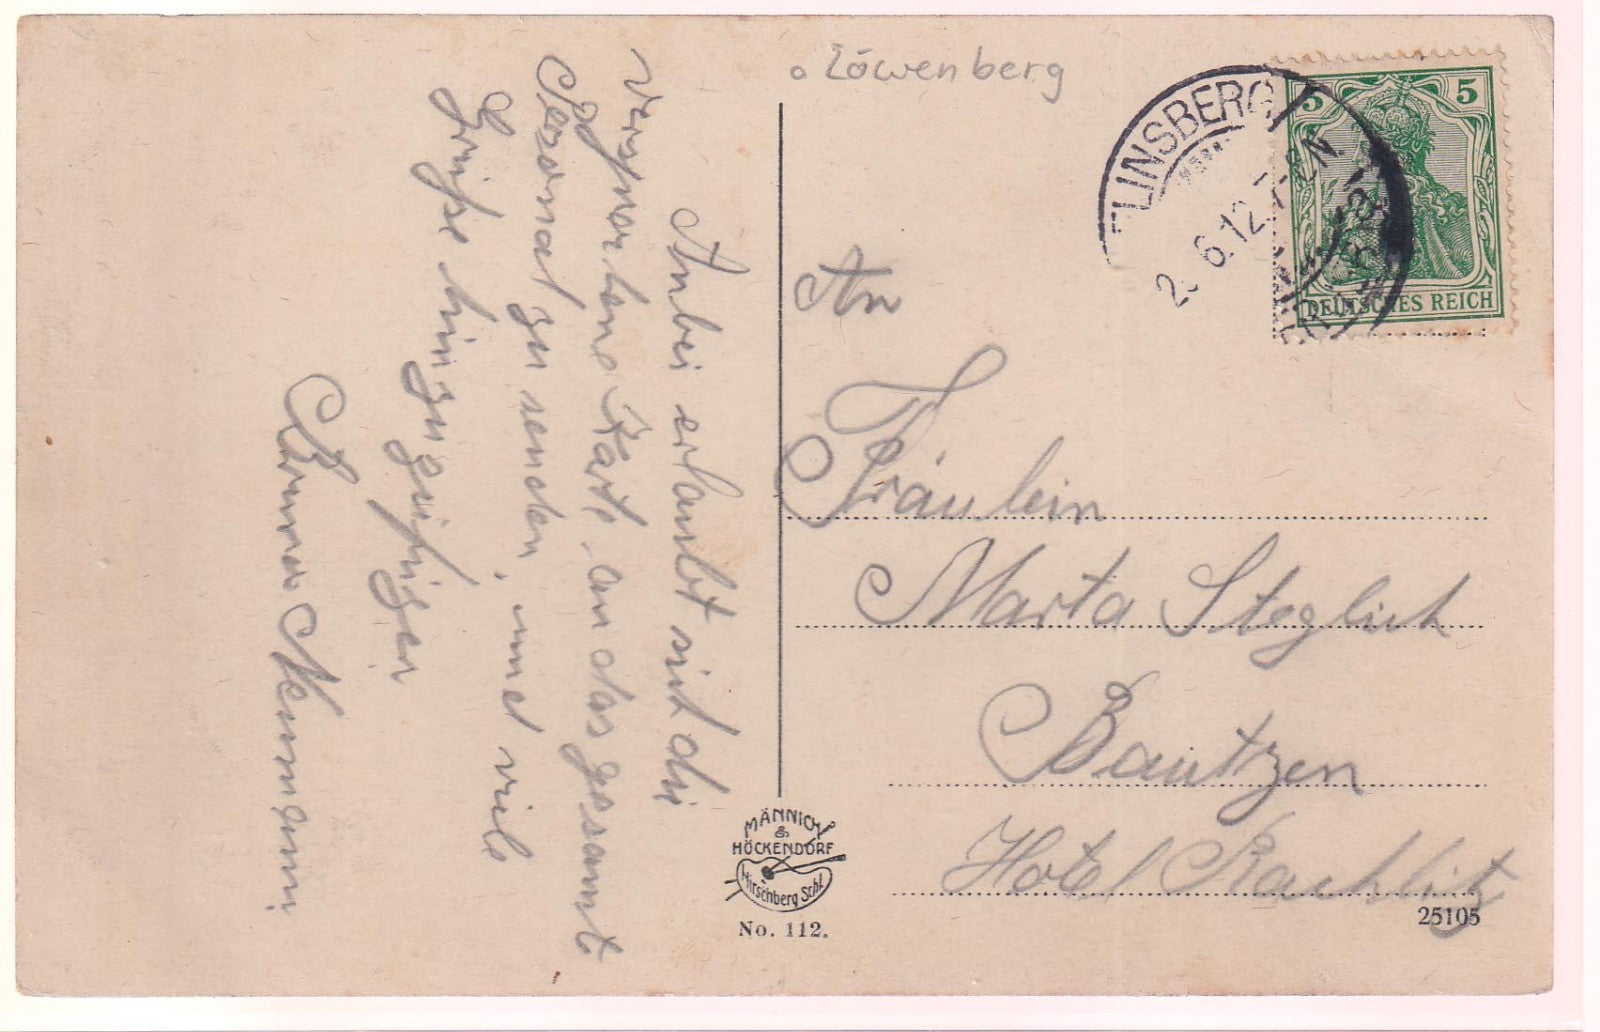 Löwenberg
FLINSBERG
2. 6.12. 7-8 N.
5 5
DEUTSCHES REICH
An
Fräulein
Marta Steglich
Bautzen
Hotel Rachlitz
Anbei erlaubt sich die
versprochene Karte, an das gesammt
Personal zu senden, und viele
Grüße hinzuzufügen
Anna Neumann
MÄNNICH
&
HÖCKENDORF
Hirschberg Schl.
No. 112.
25105